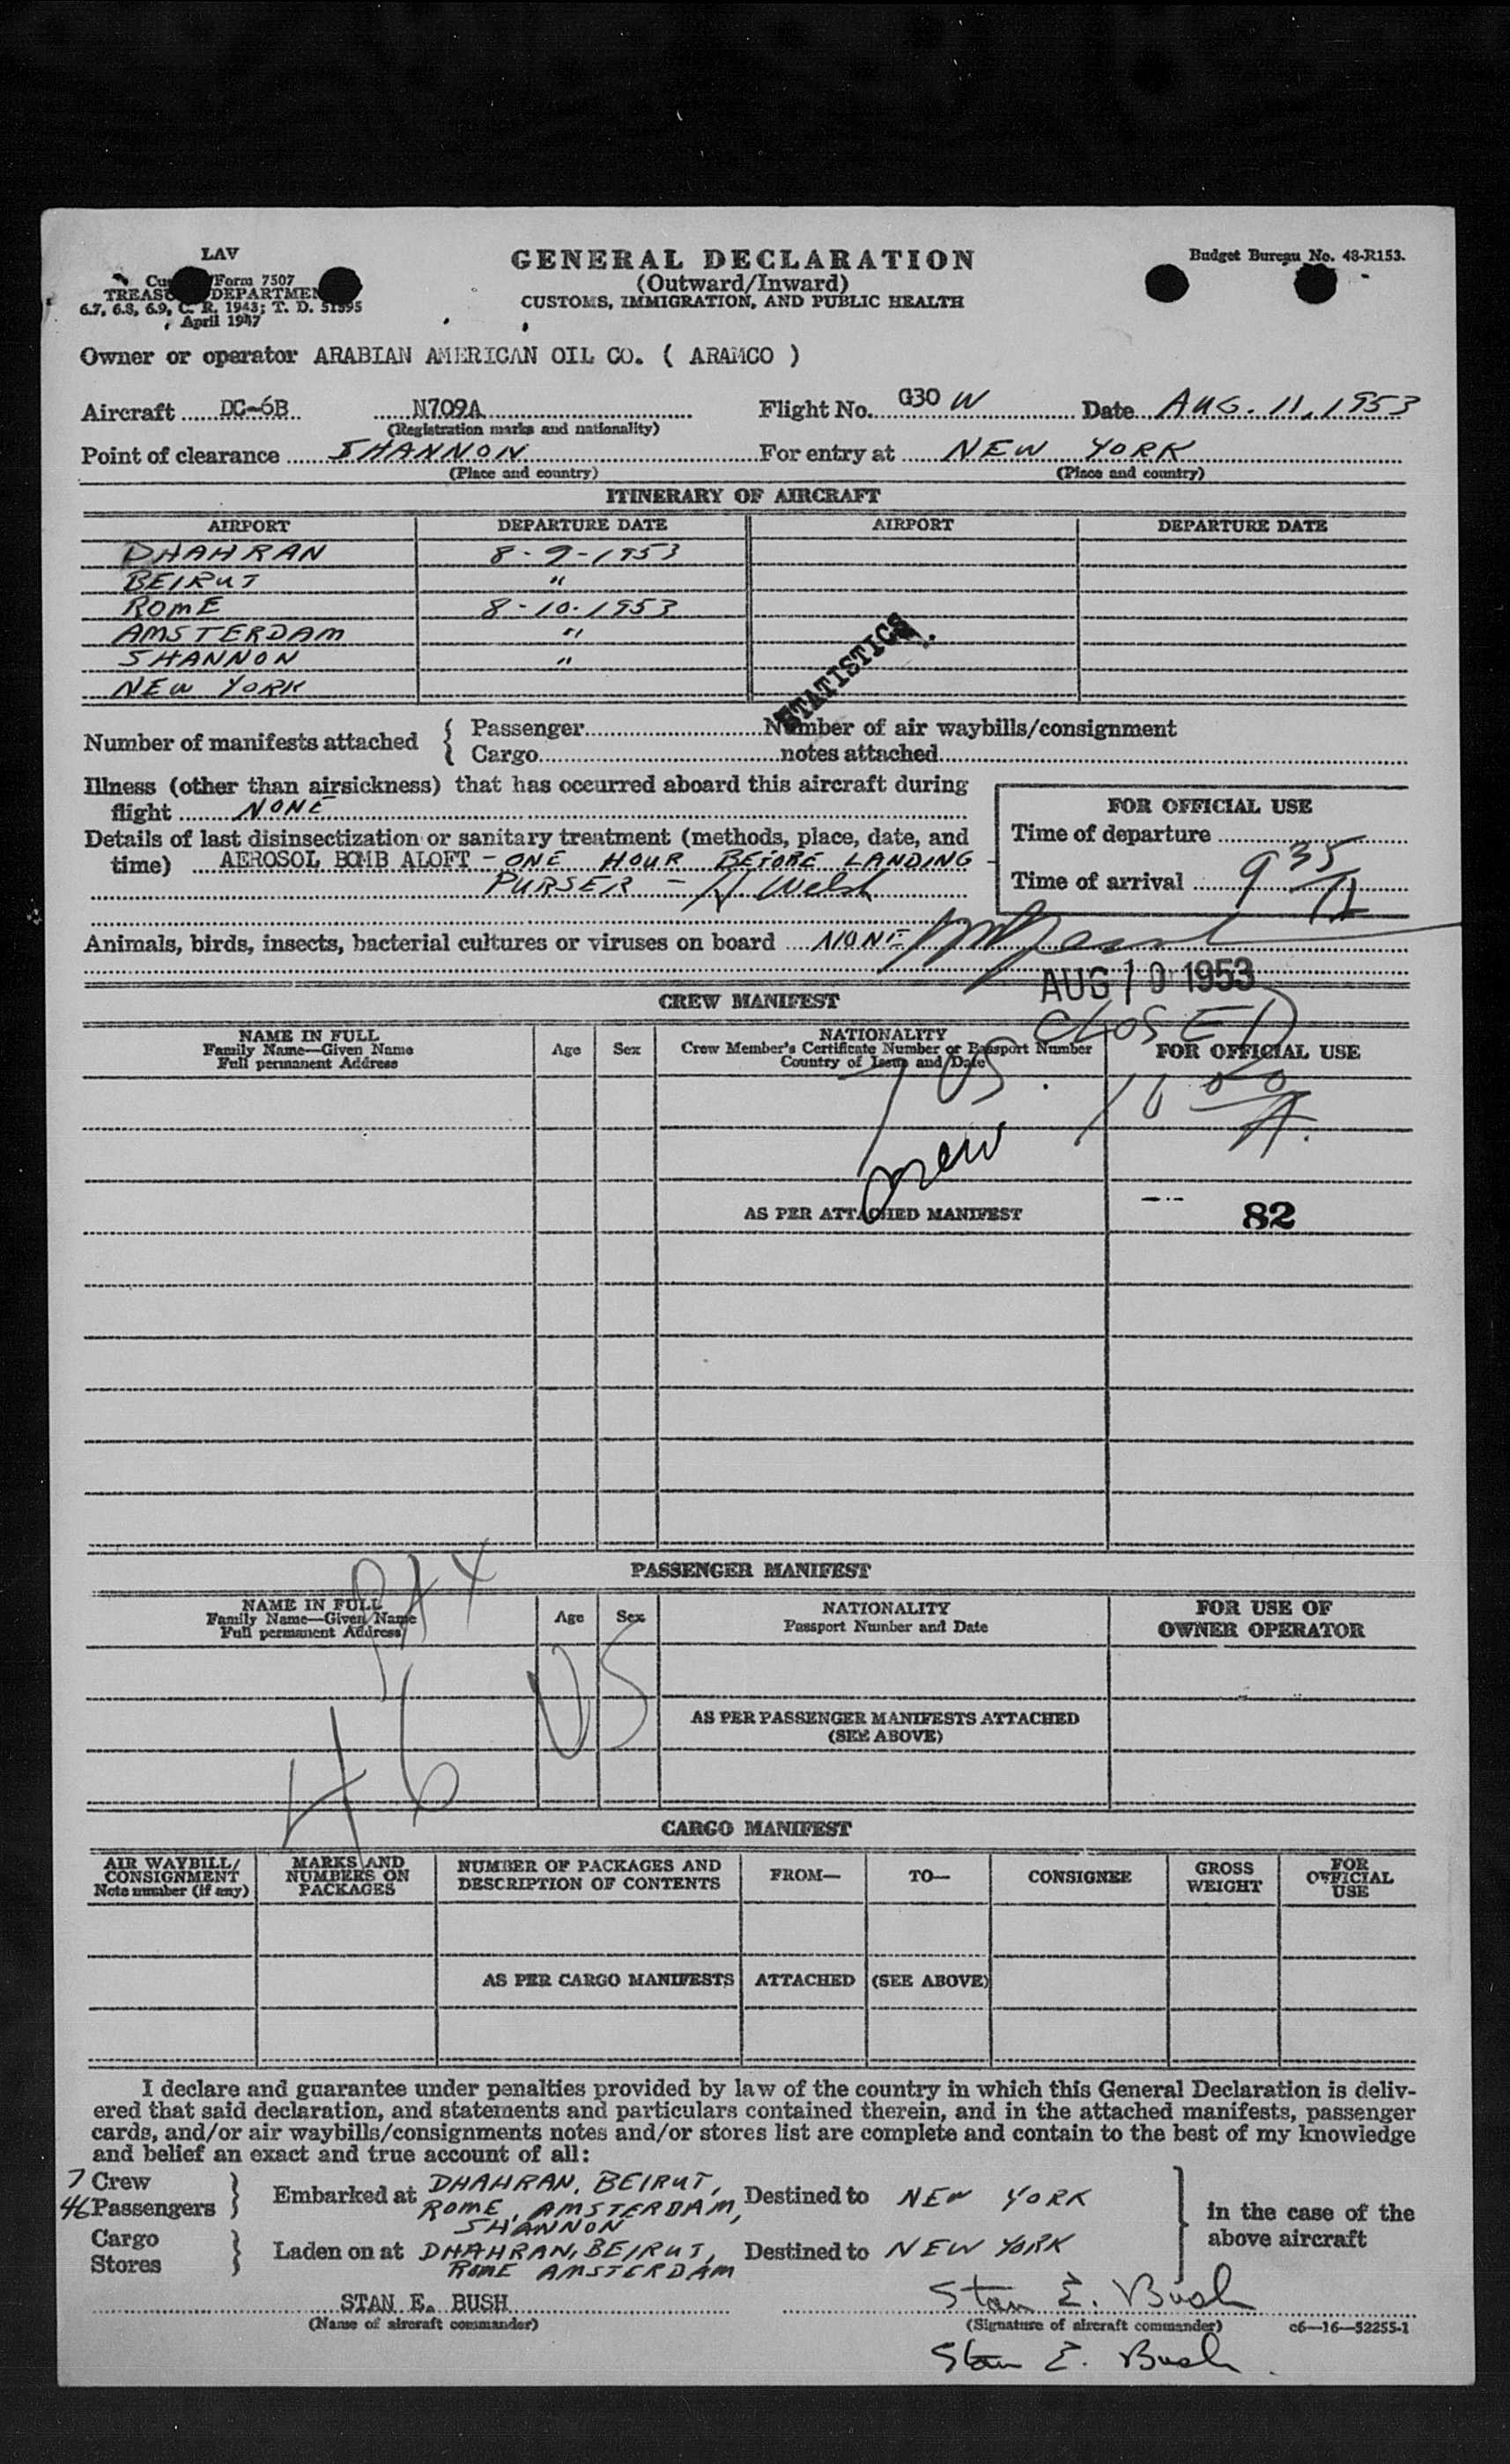 LAV
Form 7507
TREAS DEPARTMEN
6.7, 6.8, 6.9, C. R. 1943; T. D. 51595
April 1947
GENERAL DECLARATION
(Outward/Inward)
CUSTOMS, IMMIGRATION, AND PUBLIC HEALTH
Budget Bureau No. 48-R153.
Owner or operator ARABIAN AMERICAN OIL CO. ( ARAMCO )
Aircraft DC-6B N709A Flight No. G30 W Date AUG. 11, 1953
(Registration marks and nationality)
Point of clearance SHANNON For entry at NEW YORK
(Place and country) (Place and country)
ITINERARY OF AIRCRAFT
AIRPORT DEPARTURE DATE AIRPORT DEPARTURE DATE
DHAHRAN 8-9-1953
BEIRUT "
ROME 8-10-1953
AMSTERDAM "
SHANNON "
NEW YORK
STATISTICS
Number of manifests attached { Passenger Number of air waybills/consignment
{ Cargo notes attached
Illness (other than airsickness) that has occurred aboard this aircraft during
flight NONE
FOR OFFICIAL USE
Details of last disinsectization or sanitary treatment (methods, place, date, and
time) AEROSOL BOMB ALOFT - ONE HOUR BEFORE LANDING -
PURSER - H Welsh
Time of departure
Time of arrival 9 35/A
Animals, birds, insects, bacterial cultures or viruses on board NONE
AUG 10 1953
CLOSED
10 00/A.
CREW MANIFEST
NAME IN FULL
Family Name—Given Name
Full permanent Address
Age
Sex
NATIONALITY
Crew Member's Certificate Number or Passport Number
Country of Issue and Date
FOR OFFICIAL USE
7 US.
crew
AS PER ATTACHED MANIFEST
82
PASSENGER MANIFEST
NAME IN FULL
Family Name—Given Name
Full permanent Address
Age
Sex
NATIONALITY
Passport Number and Date
FOR USE OF
OWNER OPERATOR
PAX
46 US
AS PER PASSENGER MANIFESTS ATTACHED
(SEE ABOVE)
CARGO MANIFEST
AIR WAYBILL/
CONSIGNMENT
Note number (if any)
MARKS AND
NUMBERS ON
PACKAGES
NUMBER OF PACKAGES AND
DESCRIPTION OF CONTENTS
FROM—
TO—
CONSIGNEE
GROSS
WEIGHT
FOR
OFFICIAL
USE
AS PER CARGO MANIFESTS ATTACHED (SEE ABOVE)
I declare and guarantee under penalties provided by law of the country in which this General Declaration is deliv-
ered that said declaration, and statements and particulars contained therein, and in the attached manifests, passenger
cards, and/or air waybills/consignments notes and/or stores list are complete and contain to the best of my knowledge
and belief an exact and true account of all:
7 Crew
46 Passengers
} Embarked at DHAHRAN, BEIRUT,
ROME, AMSTERDAM,
SHANNON
Destined to NEW YORK
Cargo
Stores
} Laden on at DHAHRAN, BEIRUT,
ROME AMSTERDAM
Destined to NEW YORK
} in the case of the
above aircraft
STAN E. BUSH
(Name of aircraft commander)
Stan E. Bush
(Signature of aircraft commander)
c6—16—52255-1
Stan E. Bush